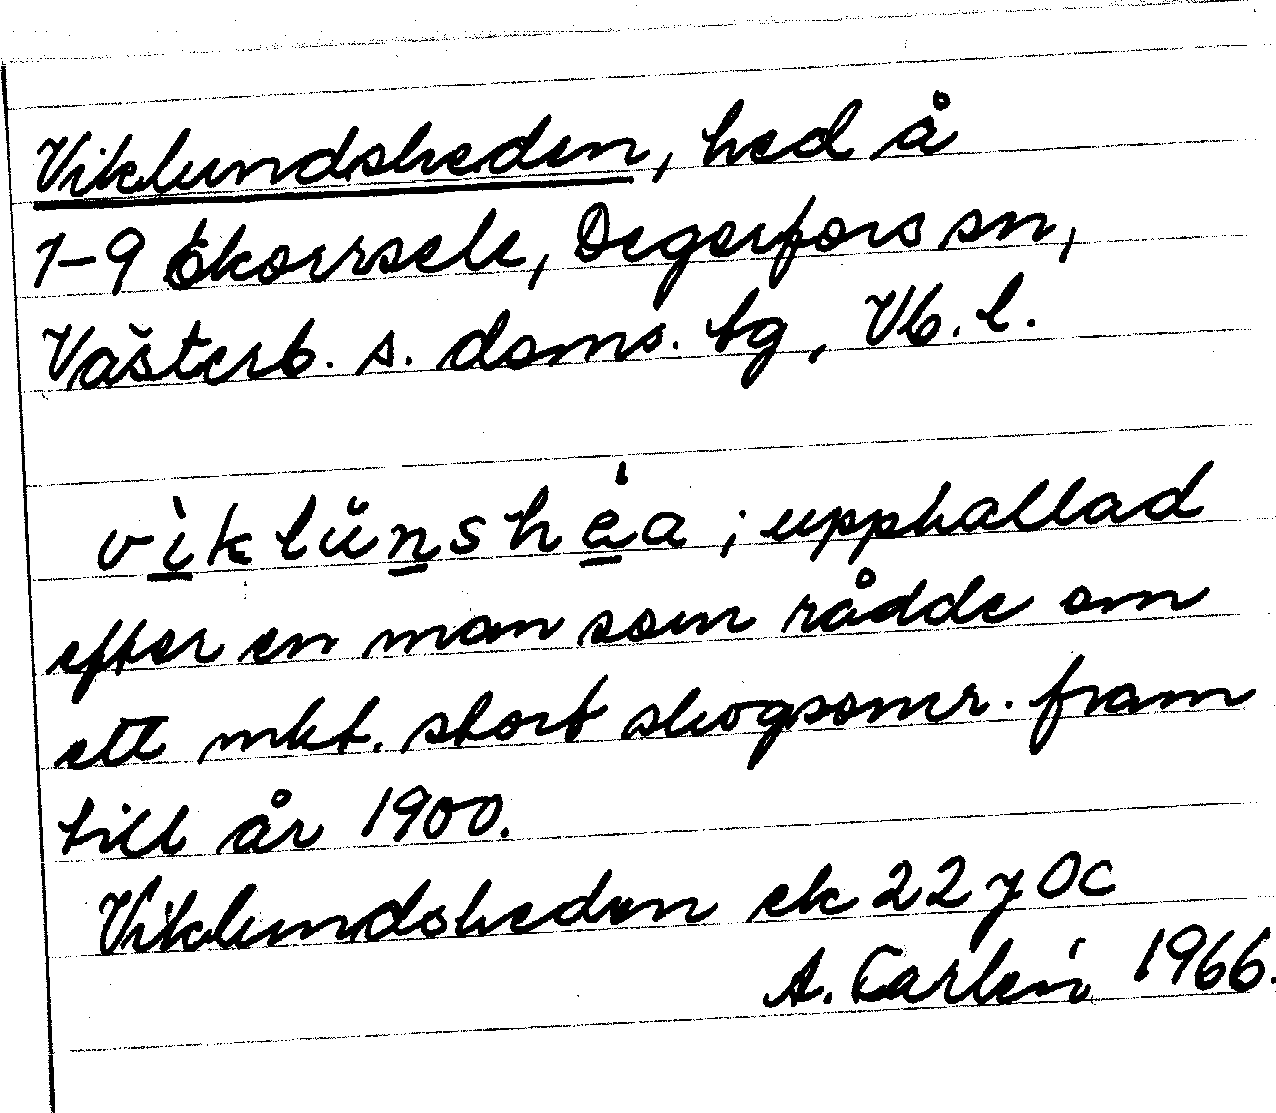 Viklundsheden, hed å
1-9 Ekorrsele, Degerfors sn,
Västerb. s. doms. tg, Vb. l.
viklŭnshéa; uppkallad
efter en man som rådde om
ett mkt. stort skogsomr. fram
till år 1900.
Viklundsheden ek 22 7 0c
A. Carlén 1966.